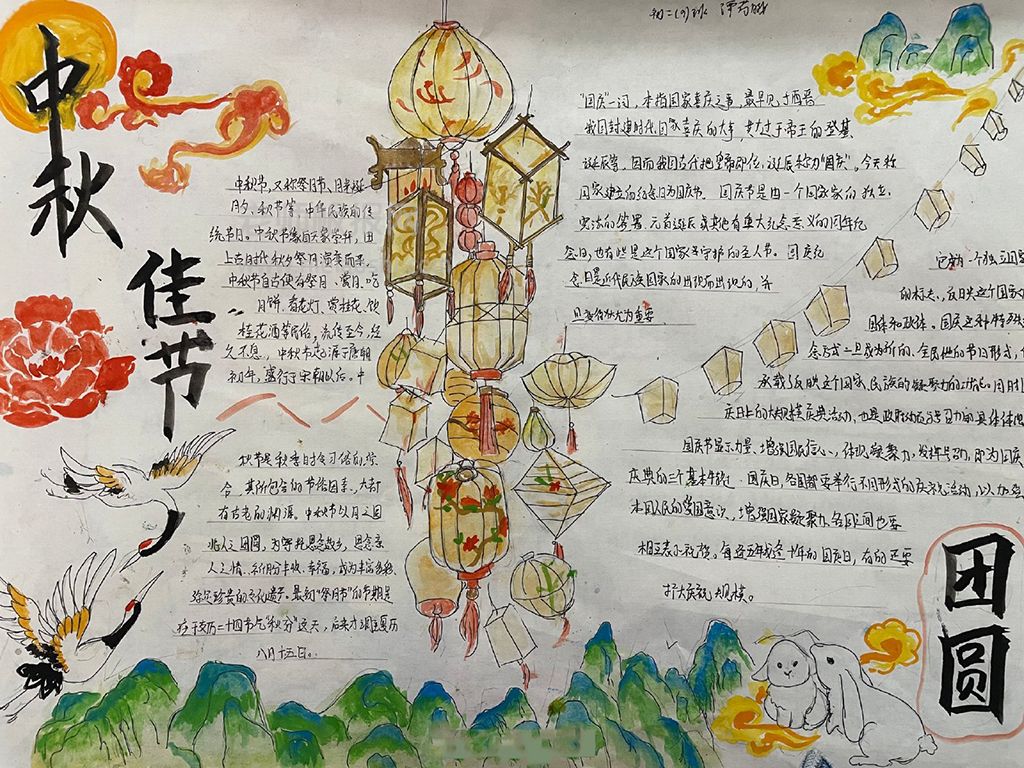 初二(9)班
中秋
佳节
中秋节,又称祭月节、月光诞
月夕、秋节等,中华民族的传
统节日。中秋节源自天象崇拜,由
上古时代秋夕祭月演变而来。
中秋节自古便有祭月、赏月、吃
月饼、看花灯、赏桂花、饮
桂花酒等民俗,流传至今,经
久不息。中秋节起源于唐朝
初年,盛行于宋朝以后。中
秋节是秋季时令习俗的综
合,其所包含的节俗因素,大都
有古老的渊源。中秋节以月之圆
兆人之团圆,为寄托思念故乡,思念亲
人之情,祈盼丰收、幸福,成为丰富多彩、
弥足珍贵的文化遗产。最初"祭月节"的节期是
在干支历二十四节气"秋分"这天,后来才调至夏历
八月十五日。
"国庆"一词,本指国家喜庆之事,最早见于西晋
我国封建时代国家喜庆的大事,莫大过于帝王的登基、
诞辰等,因而我国古代把皇帝即位、诞辰称为"国庆"。今天称
国家建立的纪念日为国庆节。国庆节是由一个国家的独立、
宪法的签署、元首诞辰或其他有重大纪念意义的周年纪
念日,也有些是这个国家守护的圣人节。国庆纪
念日是近代民族国家的出现而出现的,并
且变得尤为重要
它成为一个独立国家
的标志,反映这个国家
国体和政体。国庆这种特殊
念方式一旦成为新的、全民性的节日形式,
承载了反映这个国家、民族的凝聚力的功能。同时
庆日上的大规模庆典活动,也是政府动员与号召力的具体体现
国庆节显示力量、增强国民信心、体现凝聚力,发挥号召力,即为国庆
庆典的三个基本特征。国庆日,各国都要举行不同形式的庆祝活动,以加强
本国人民的爱国意识,增强国家凝聚力。各国之间也要
相互表示祝贺。每逢五年或逢十年的国庆日,有的还要
扩大庆祝规模。
团
圆